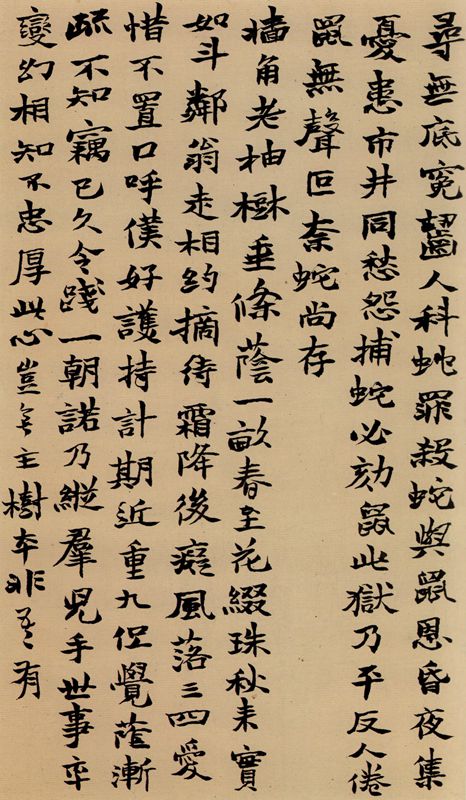 尋無底冤齧人科蛇罪殺蛇與鼠恩昏夜集
憂患市井同愁怨捕蛇必劾鼠此獄乃平反人倦
鼠無聲叵柰蛇尚存
墻角老柚樹垂條蔭一畝春至花綴珠秋來實
如斗鄰翁走相約摘待霜降後癡風落三四愛
惜不置口呼僕好護持計期近重九但覺蔭漸
疏不知竊已久令踐一朝諾乃縱群兒手世事卒
變幻相知不忠厚此心豈無主樹本非吾有